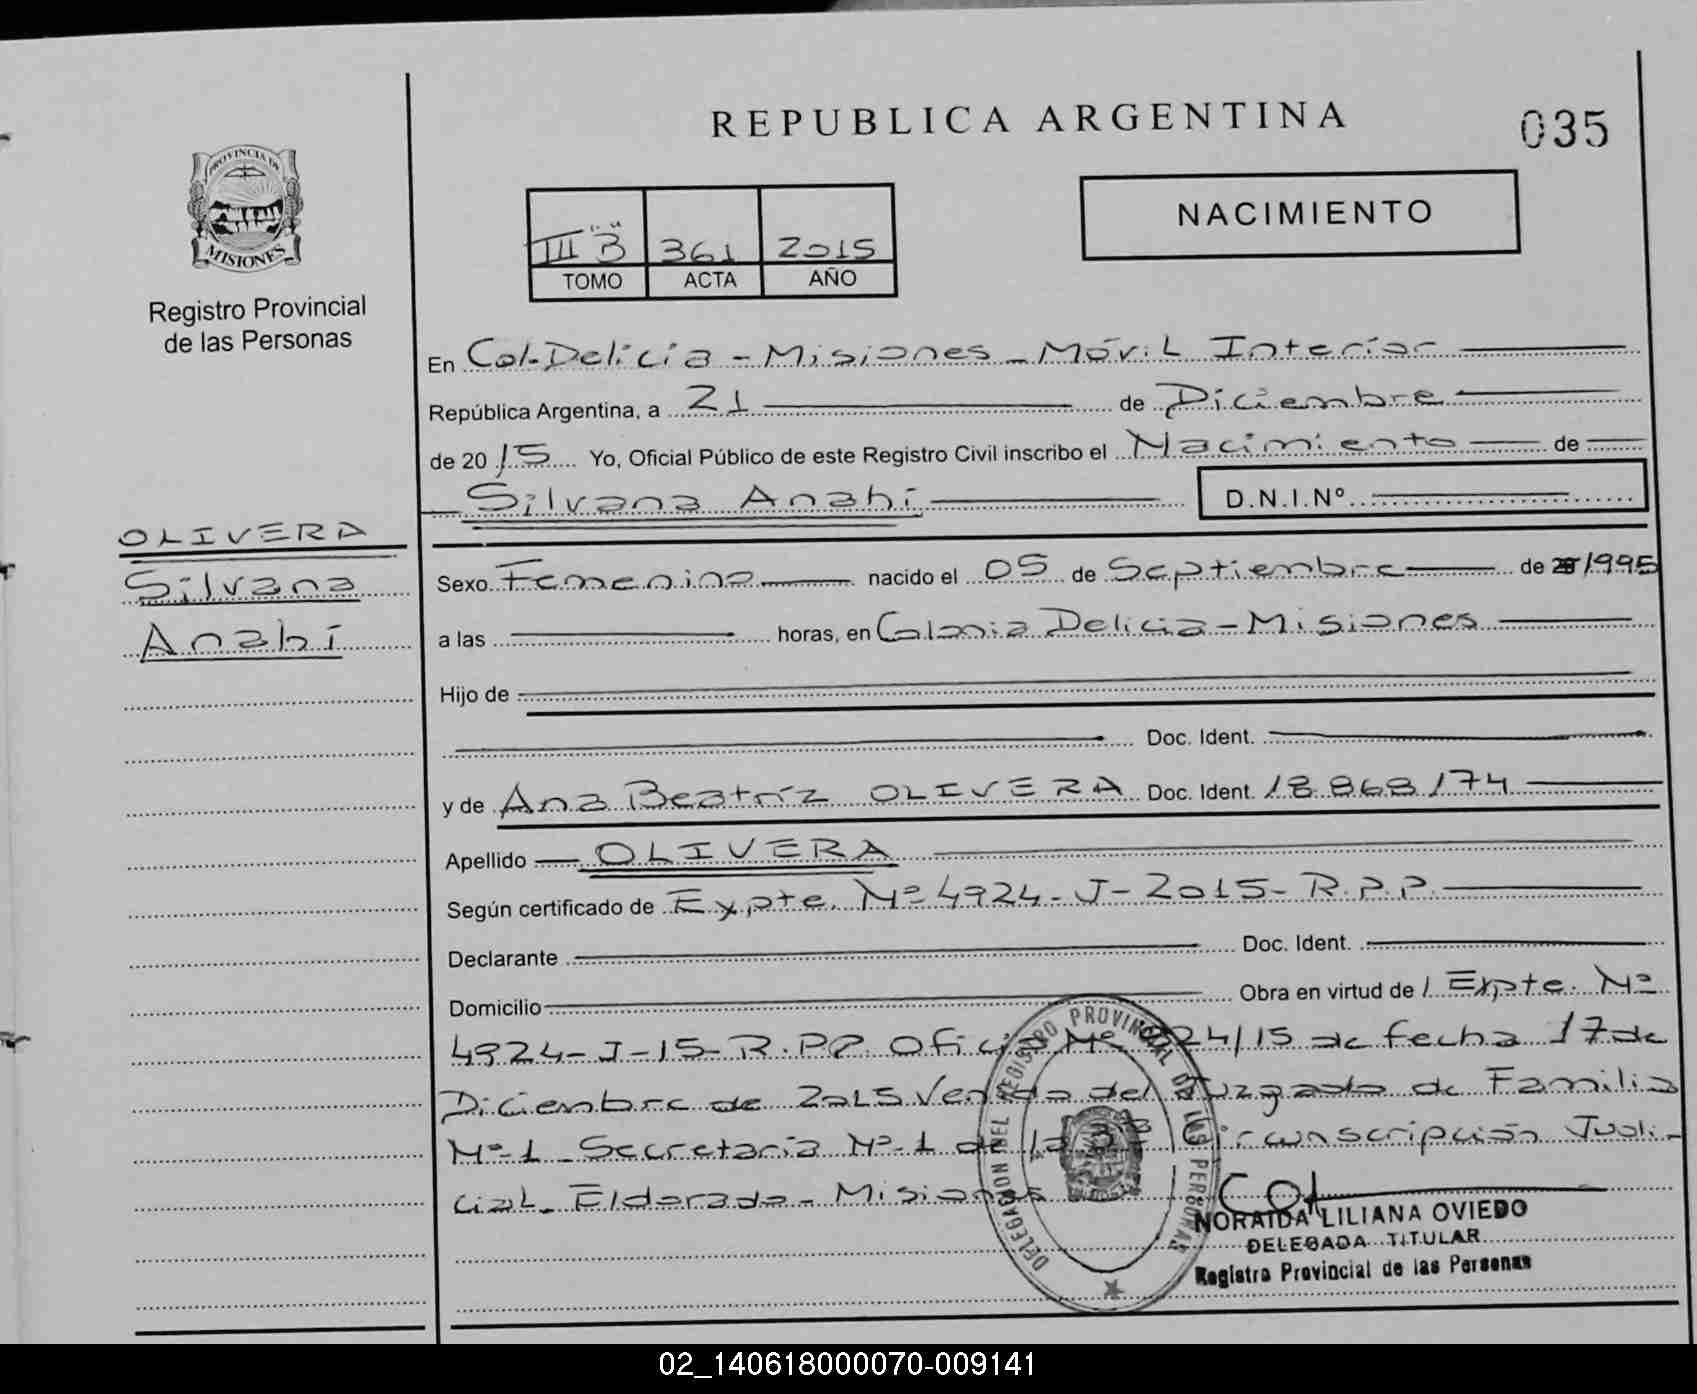 REPUBLICA ARGENTINA
035
PROVINCIA DE
MISIONES
Registro Provincial
de las Personas
NACIMIENTO
III "B" 361 2015
TOMO ACTA AÑO
En Col. Delicia - Misiones - Móvil Interior
República Argentina, a 21 de Diciembre
de 2015 Yo, Oficial Público de este Registro Civil inscribo el Nacimiento de
Silvana Anahí D.N.I.Nº
OLIVERA
Silvana
Anahí
Sexo Femenino nacido el 05 de Septiembre de 1995
a las horas, en Colonia Delicia - Misiones
Hijo de
Doc. Ident.
y de Ana Beatríz OLIVERA Doc. Ident. 18.868.174
Apellido OLIVERA
Según certificado de Expte. Nº 4924-J-2015-R.P.P.
Declarante Doc. Ident.
Domicilio Obra en virtud de / Expte. Nº
4924-J-15-R.P.P. Oficio Nº 24/15 de fecha 17 de
Diciembre de 2015 Venido del Juzgado de Familia
Nº-1 Secretaría Nº-1 de la 3ª Circunscripción Judi-
cial. Eldorado - Misiones
DELEGACION DEL REGISTRO PROVINCIAL DE LAS PERSONAS
NORAIDA LILIANA OVIEDO
DELEGADA TITULAR
Registro Provincial de las Personas
02_140618000070-009141